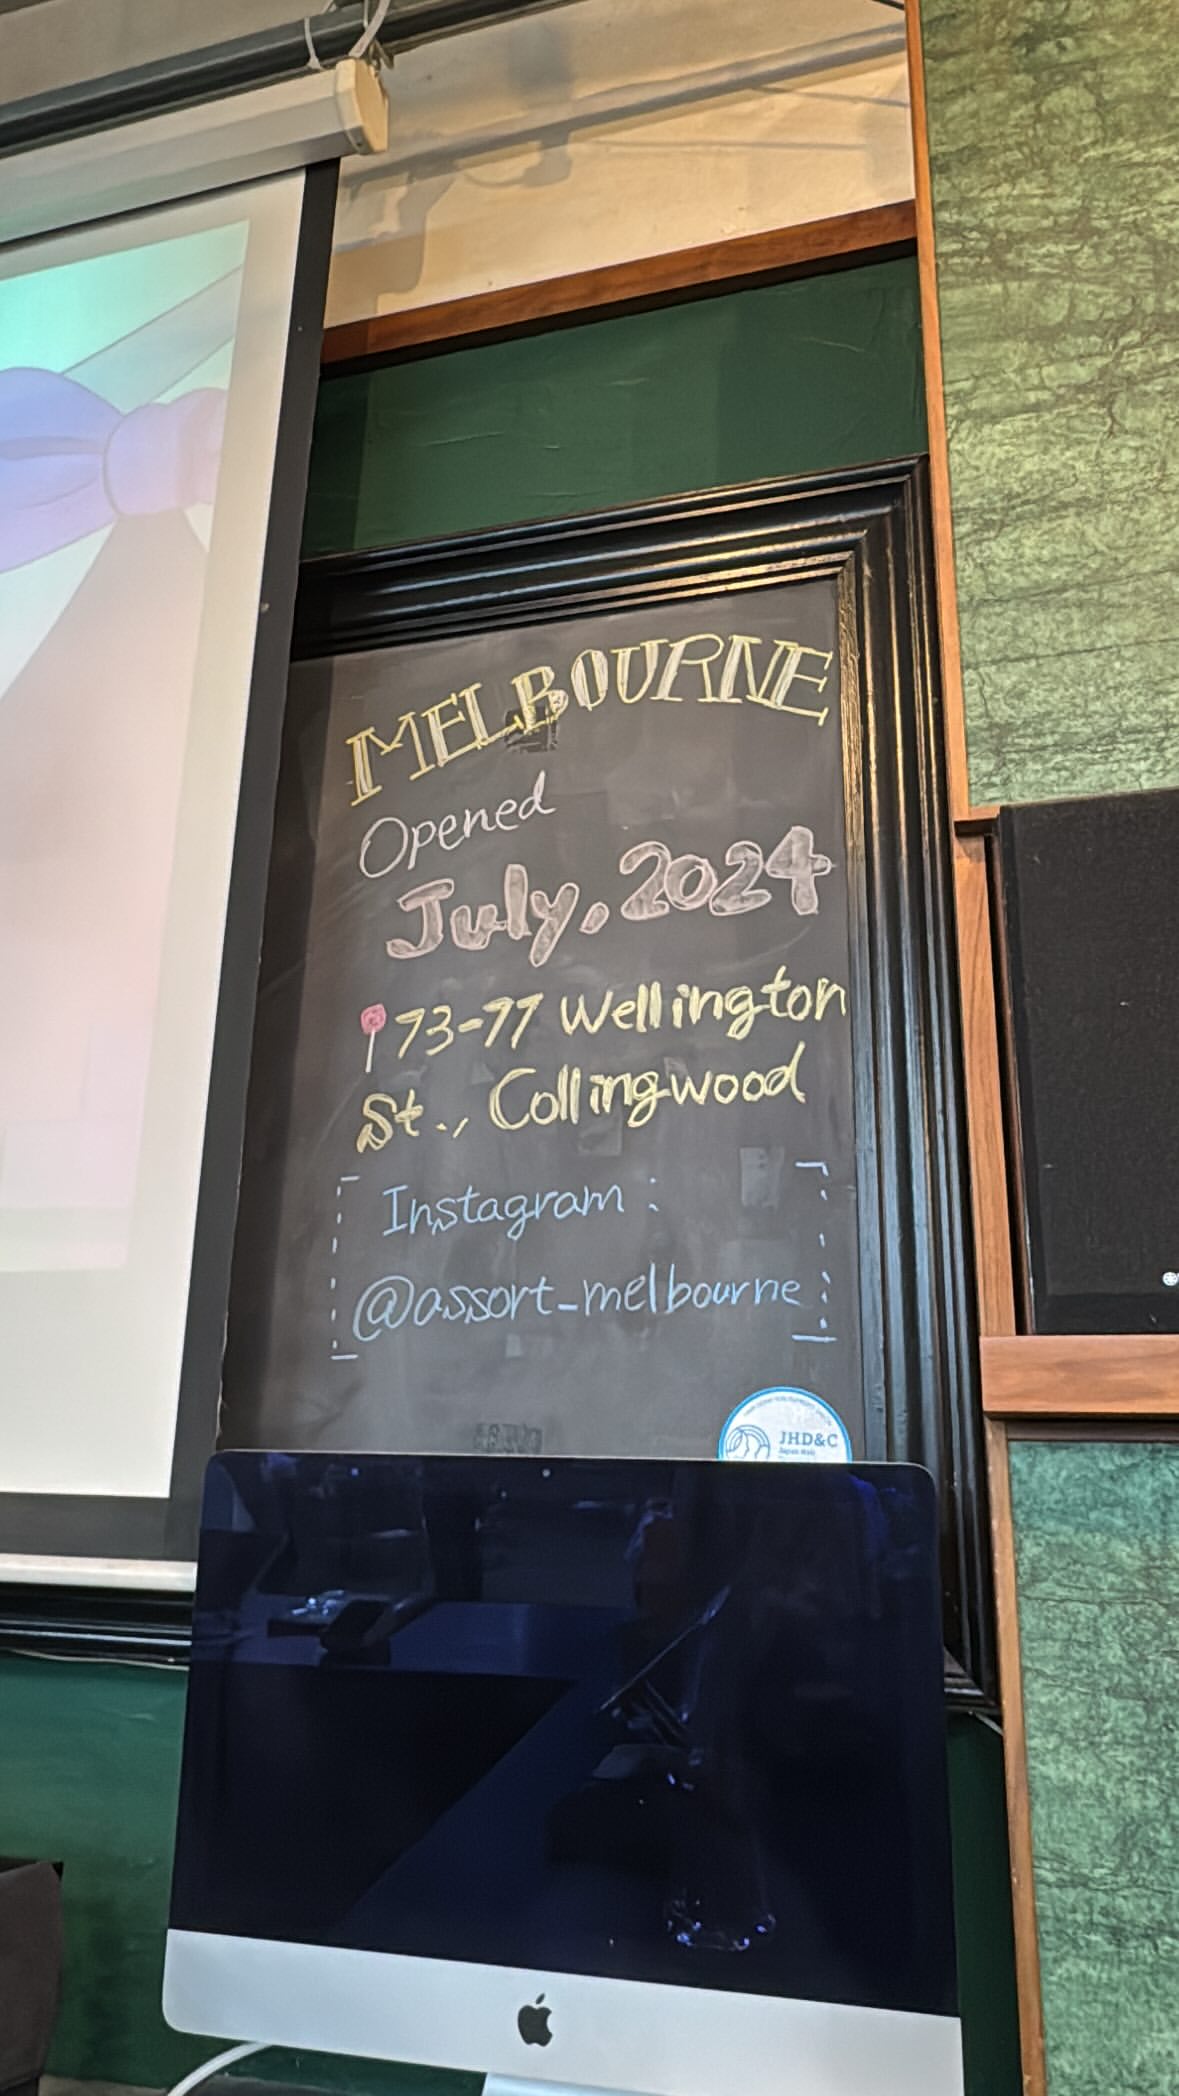 MELBOURNE
Opened
July, 2024
73-77 Wellington
St., Collingwood
Instagram :
@assort_melbourne
JHD&C